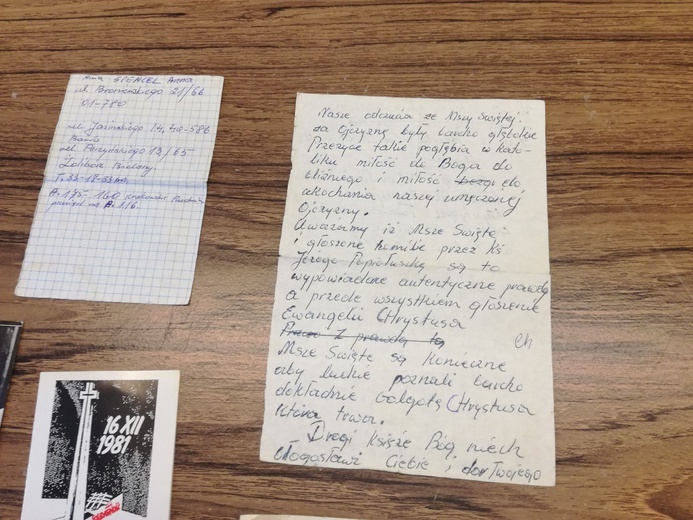 SPENCEL Anna
ul. Broniewskiego 21/66
01-780
ul. Jasińskiego 14,
ul. Perzyńskiego 13/65
Żoliborz Bielany
A. 175- 160
Nasze odczucia ze Mszy Świętej:
za Ojczyznę były bardzo głębokie
Przeżyć takie pogłębia w kato-
liku miłość do Boga do
bliźniego i miłość do
ukochania naszej umęczonej
Ojczyzny.
Uważamy iż Msze Święte
i głoszone homilie przez Ks
Jerzego Popiełuszkę są to
wypowiadane autentyczne prawdy
a przede wszystkiem głoszenie
Ewangelii Chrystusa
Prawo z prawdą to
ch
Msze Święte są konieczne
aby ludzie poznali bardzo
dokładnie Golgotę Chrystusa
która trwa.
Drogi Księże Bóg niech
błogosławi Ciebie i dar Twojego
16 XII
1981